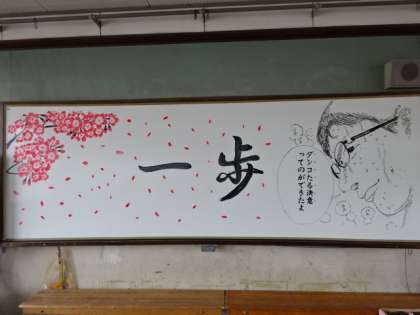 一歩
ダンコたる決意
ってのができたよ